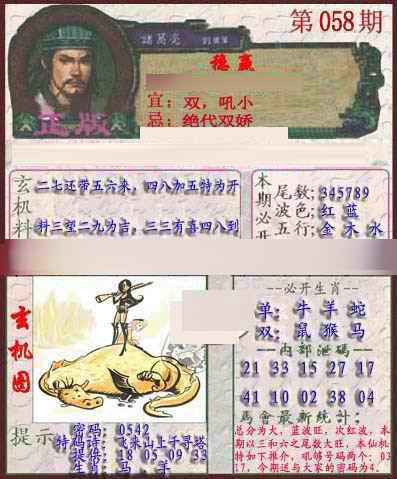 第058期
諸葛亮
稳赢
宜：双，吼小
忌：绝代双娇
正版
玄机料
二七还带五六来，四八加五特为开
料三望二九为吉，三三有喜四八到
本期必开
尾数：345789
波色：红 蓝
五行：金 木 水
玄机图
必开生肖
单：牛 羊 蛇
双：鼠 猴 马
内部泄码
21 33 15 27 17
41 10 02 38 04
馬會最新統计：
总分为大，蓝波旺，次红波，本
期以三和六之尾数大旺，本仙机
特如下推介，吼够号码两个：03
17，今期送与大家的密码为4.
提示
密码：0542
特码诗：飞来山上千寻塔
提供：18 05 09 33
生肖：马、羊